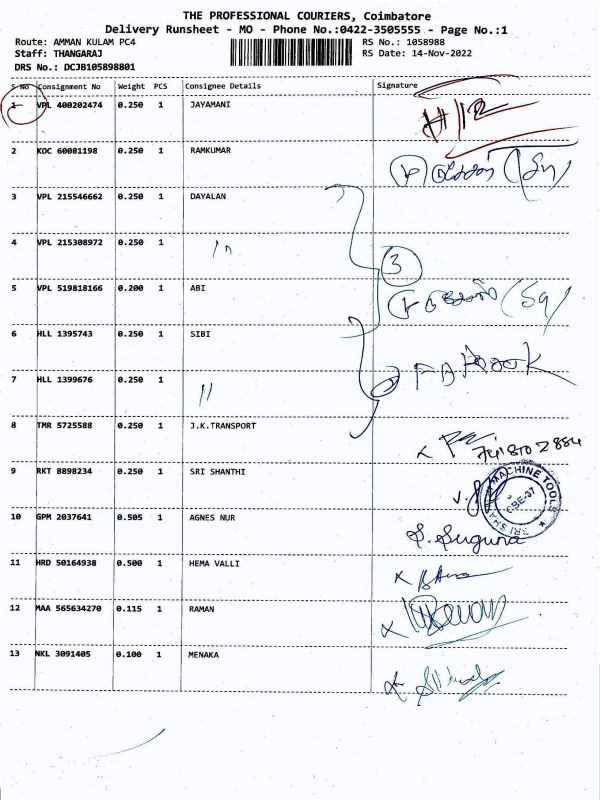 THE PROFESSIONAL COURIERS, Coimbatore
Delivery Runsheet - MO - Phone No.:0422-3505555 - Page No.:1
Route: AMMAN KULAM PC4 RS No.: 1058988
Staff: THANGARAJ RS Date: 14-Nov-2022
DRS No.: DCJB105898801
S No Consignment No Weight PCS Consignee Details Signature
1 VPL 400202474 0.250 1 JAYAMANI
2 KOC 60081198 0.250 1 RAMKUMAR
3 VPL 215546662 0.250 1 DAYALAN
4 VPL 215308972 0.250 1 "
3
5 VPL 519818166 0.200 1 ABI
6 HLL 1395743 0.250 1 SIBI
7 HLL 1399676 0.250 1 "
8 TMR 5725588 0.250 1 J.K.TRANSPORT
9 RKT 8898234 0.250 1 SRI SHANTHI
MACHINE TOOLS
CBE-37
10 GPM 2037641 0.505 1 AGNES NUR S. Suguna
11 HRD 50164938 0.500 1 HEMA VALLI
12 MAA 565634270 0.115 1 RAMAN
13 NKL 3091405 0.100 1 MENAKA